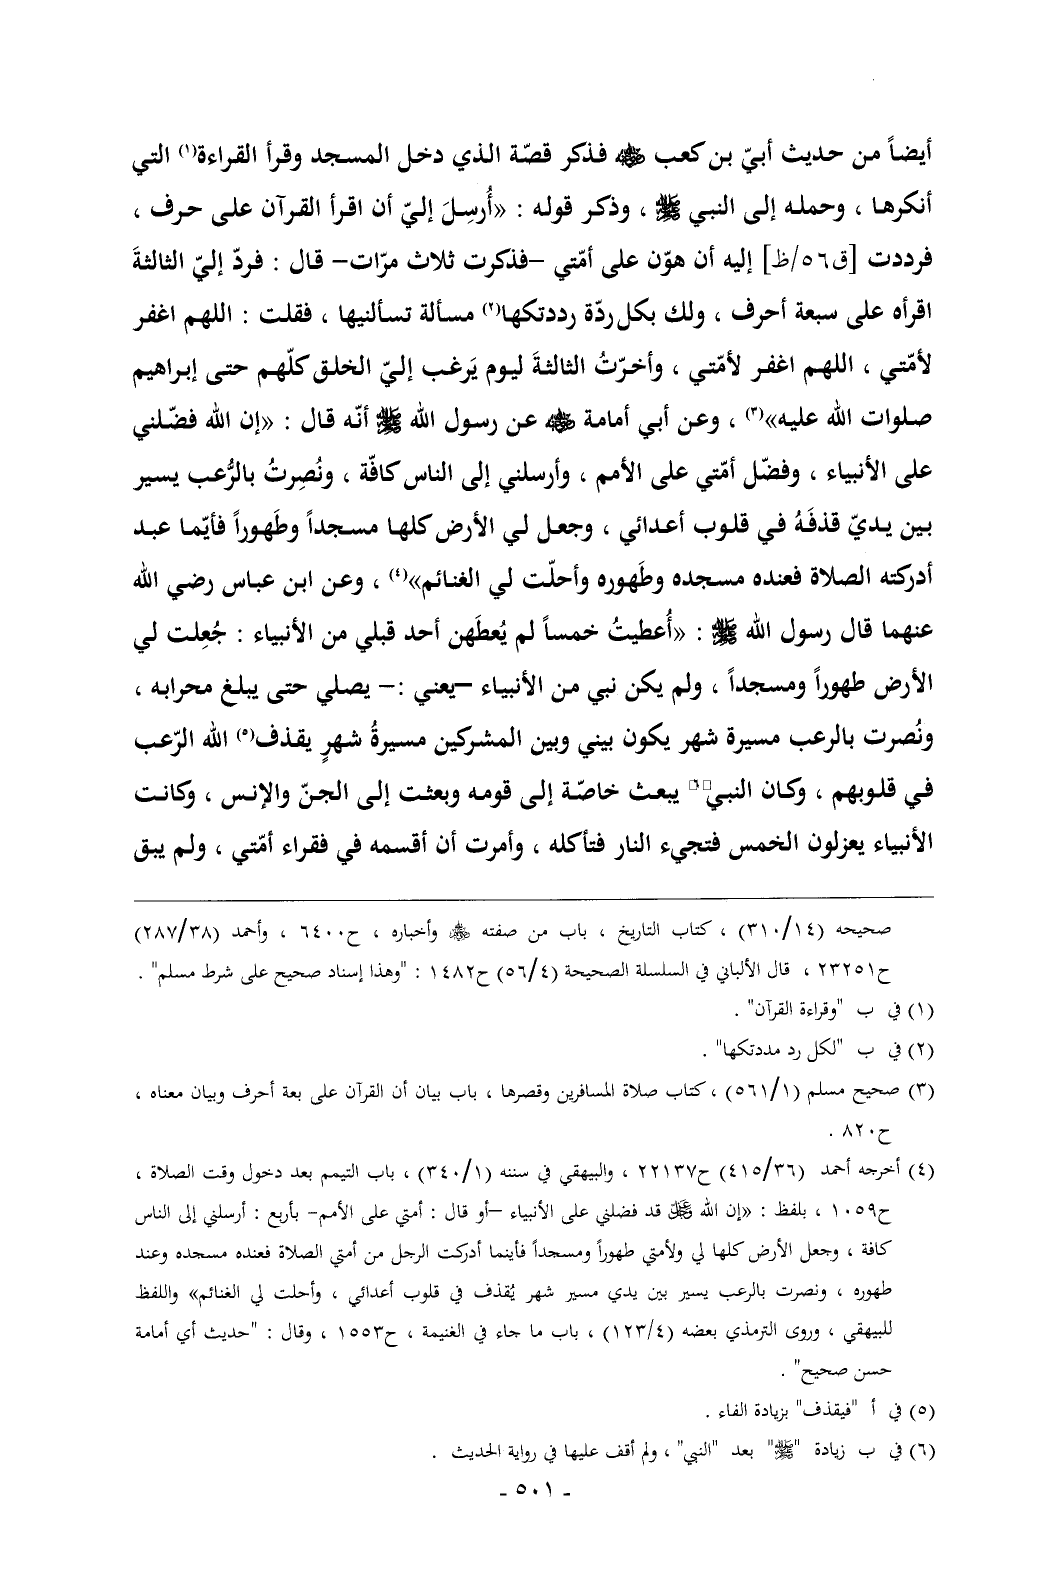 أيضاً من حديث أبيّ بن كعب ﷺ فذكر قصّة الذي دخل المسجد وقرأ القراءة(١) التي
أنكرها ، وحمله إلى النبي ﷺ ، وذكر قوله : «أُرسِلَ إليّ أن اقرأ القرآن على حرف ،
فرددت [ق٥٦/ظ] إليه أن هوّن على أمّتي –فذكرت ثلاث مرّات– قال : فردّ إليّ الثالثةَ
اقرأه على سبعة أحرف ، ولك بكل ردّة رددتكها(٢) مسألة تسألنيها ، فقلت : اللهم اغفر
لأمّتي ، اللهم اغفر لأمّتي ، وأخرّتُ الثالثةَ ليوم يَرغب إليّ الخلق كلّهم حتى إبراهيم
صلوات الله عليه»(٣) ، وعن أبي أمامة ﷺ عن رسول الله ﷺ أنّه قال : «إن الله فضّلني
على الأنبياء ، وفضّل أمّتي على الأمم ، وأرسلني إلى الناس كافّة ، ونُصِرتُ بالرُّعب يسير
بين يديّ قذفَهُ في قلوب أعدائي ، وجعل لي الأرض كلها مسجداً وطَهوراً فأيّما عبد
أدركته الصلاة فعنده مسجده وطَهوره وأحلّت لي الغنائم»(٤) ، وعن ابن عباس رضي الله
عنهما قال رسول الله ﷺ : «أُعطيتُ خمساً لم يُعطَهن أحد قبلي من الأنبياء : جُعِلت لي
الأرض طهوراً ومسجداً ، ولم يكن نبي من الأنبياء –يعني :– يصلي حتى يبلغ محرابه ،
ونُصرت بالرعب مسيرة شهر يكون بيني وبين المشركين مسيرةُ شهرٍ يقذف(٥) الله الرّعب
في قلوبهم ، وكان النبي(٦) يبعث خاصّة إلى قومه وبعثت إلى الجنّ والإنس ، وكانت
الأنبياء يعزلون الخمس فتجيء النار فتأكله ، وأمرت أن أقسمه في فقراء أمّتي ، ولم يبق
صحيحه (٣١٠/١٤) ، كتاب التاريخ ، باب من صفته ﷺ وأخباره ، ح٦٤٠٠ ، وأحمد (٢٨٧/٣٨)
ح٢٣٢٥١ ، قال الألباني في السلسلة الصحيحة (٥٦/٤) ح١٤٨٢ : "وهذا إسناد صحيح على شرط مسلم" .
(١) في ب "وقراءة القرآن" .
(٢) في ب "لكل رد مددتكها" .
(٣) صحيح مسلم (٥٦١/١) ، كتاب صلاة المسافرين وقصرها ، باب بيان أن القرآن على بعة أحرف وبيان معناه ،
ح٨٢٠ .
(٤) أخرجه أحمد (٤١٥/٣٦) ح٢٢١٣٧ ، والبيهقي في سننه (٣٤٠/١) ، باب التيمم بعد دخول وقت الصلاة ،
ح١٠٥٩ ، بلفظ : «إن الله ﷻ قد فضلني على الأنبياء –أو قال : أمتي على الأمم– بأربع : أرسلني إلى الناس
كافة ، وجعل الأرض كلها لي ولأمتي طهوراً ومسجداً فأينما أدركت الرجل من أمتي الصلاة فعنده مسجده وعند
طهوره ، ونصرت بالرعب يسير بين يدي مسير شهر يُقذف في قلوب أعدائي ، وأحلت لي الغنائم» واللفظ
للبيهقي ، وروى الترمذي بعضه (١٢٣/٤) ، باب ما جاء في الغنيمة ، ح١٥٥٣ ، وقال : "حديث أي أمامة
حسن صحيح" .
(٥) في أ "فيقذف" بزيادة الفاء .
(٦) في ب زيادة "ﷺ" بعد "النبي" ، ولم أقف عليها في رواية الحديث .
- ٥٠١ -